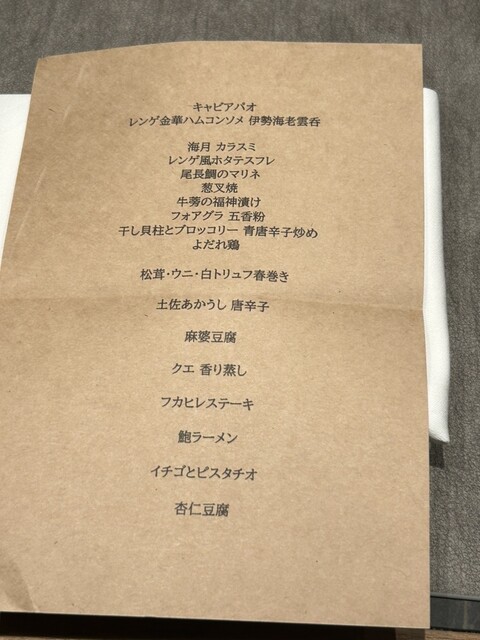 キャビアパオ
レンゲ金華ハムコンソメ 伊勢海老雲呑
海月 カラスミ
レンゲ風ホタテスフレ
尾長鯛のマリネ
葱叉焼
牛蒡の福神漬け
フォアグラ 五香粉
干し貝柱とブロッコリー 青唐辛子炒め
よだれ鶏
松茸・ウニ・白トリュフ春巻き
土佐あかうし 唐辛子
麻婆豆腐
クエ 香り蒸し
フカヒレステーキ
鮑ラーメン
イチゴとピスタチオ
杏仁豆腐